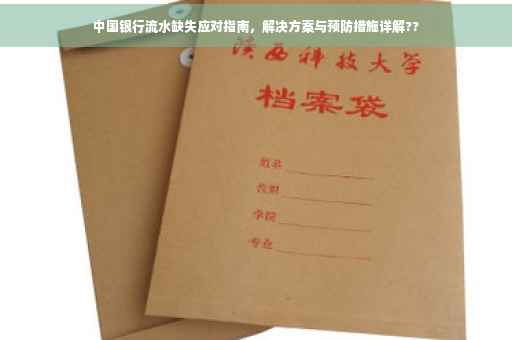 中国银行流水缺失应对指南，解决方案与预防措施详解??
陕西科技大学
档案袋
姓名
学院
专业